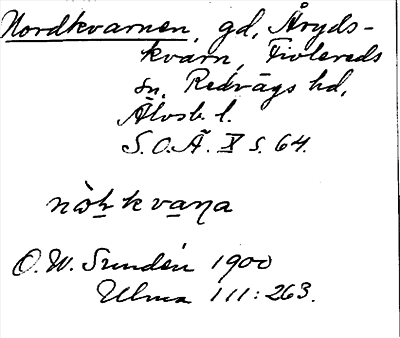 Nordkvarnen, gd, Åryds-
kvarn, Tivlereds
sn, Redvägs hd,
Älvsb. l.
S.O.Ä. X s. 64.
nò̱ḵkva̱ŋa
O.W. Sundén 1900
Ulma 111:263.